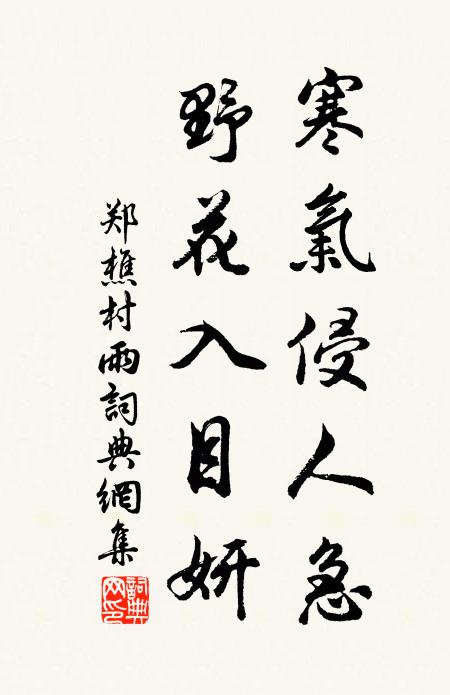 寒氣侵人急
野花入目妍
郑樵村雨詞典網集
詞典網印